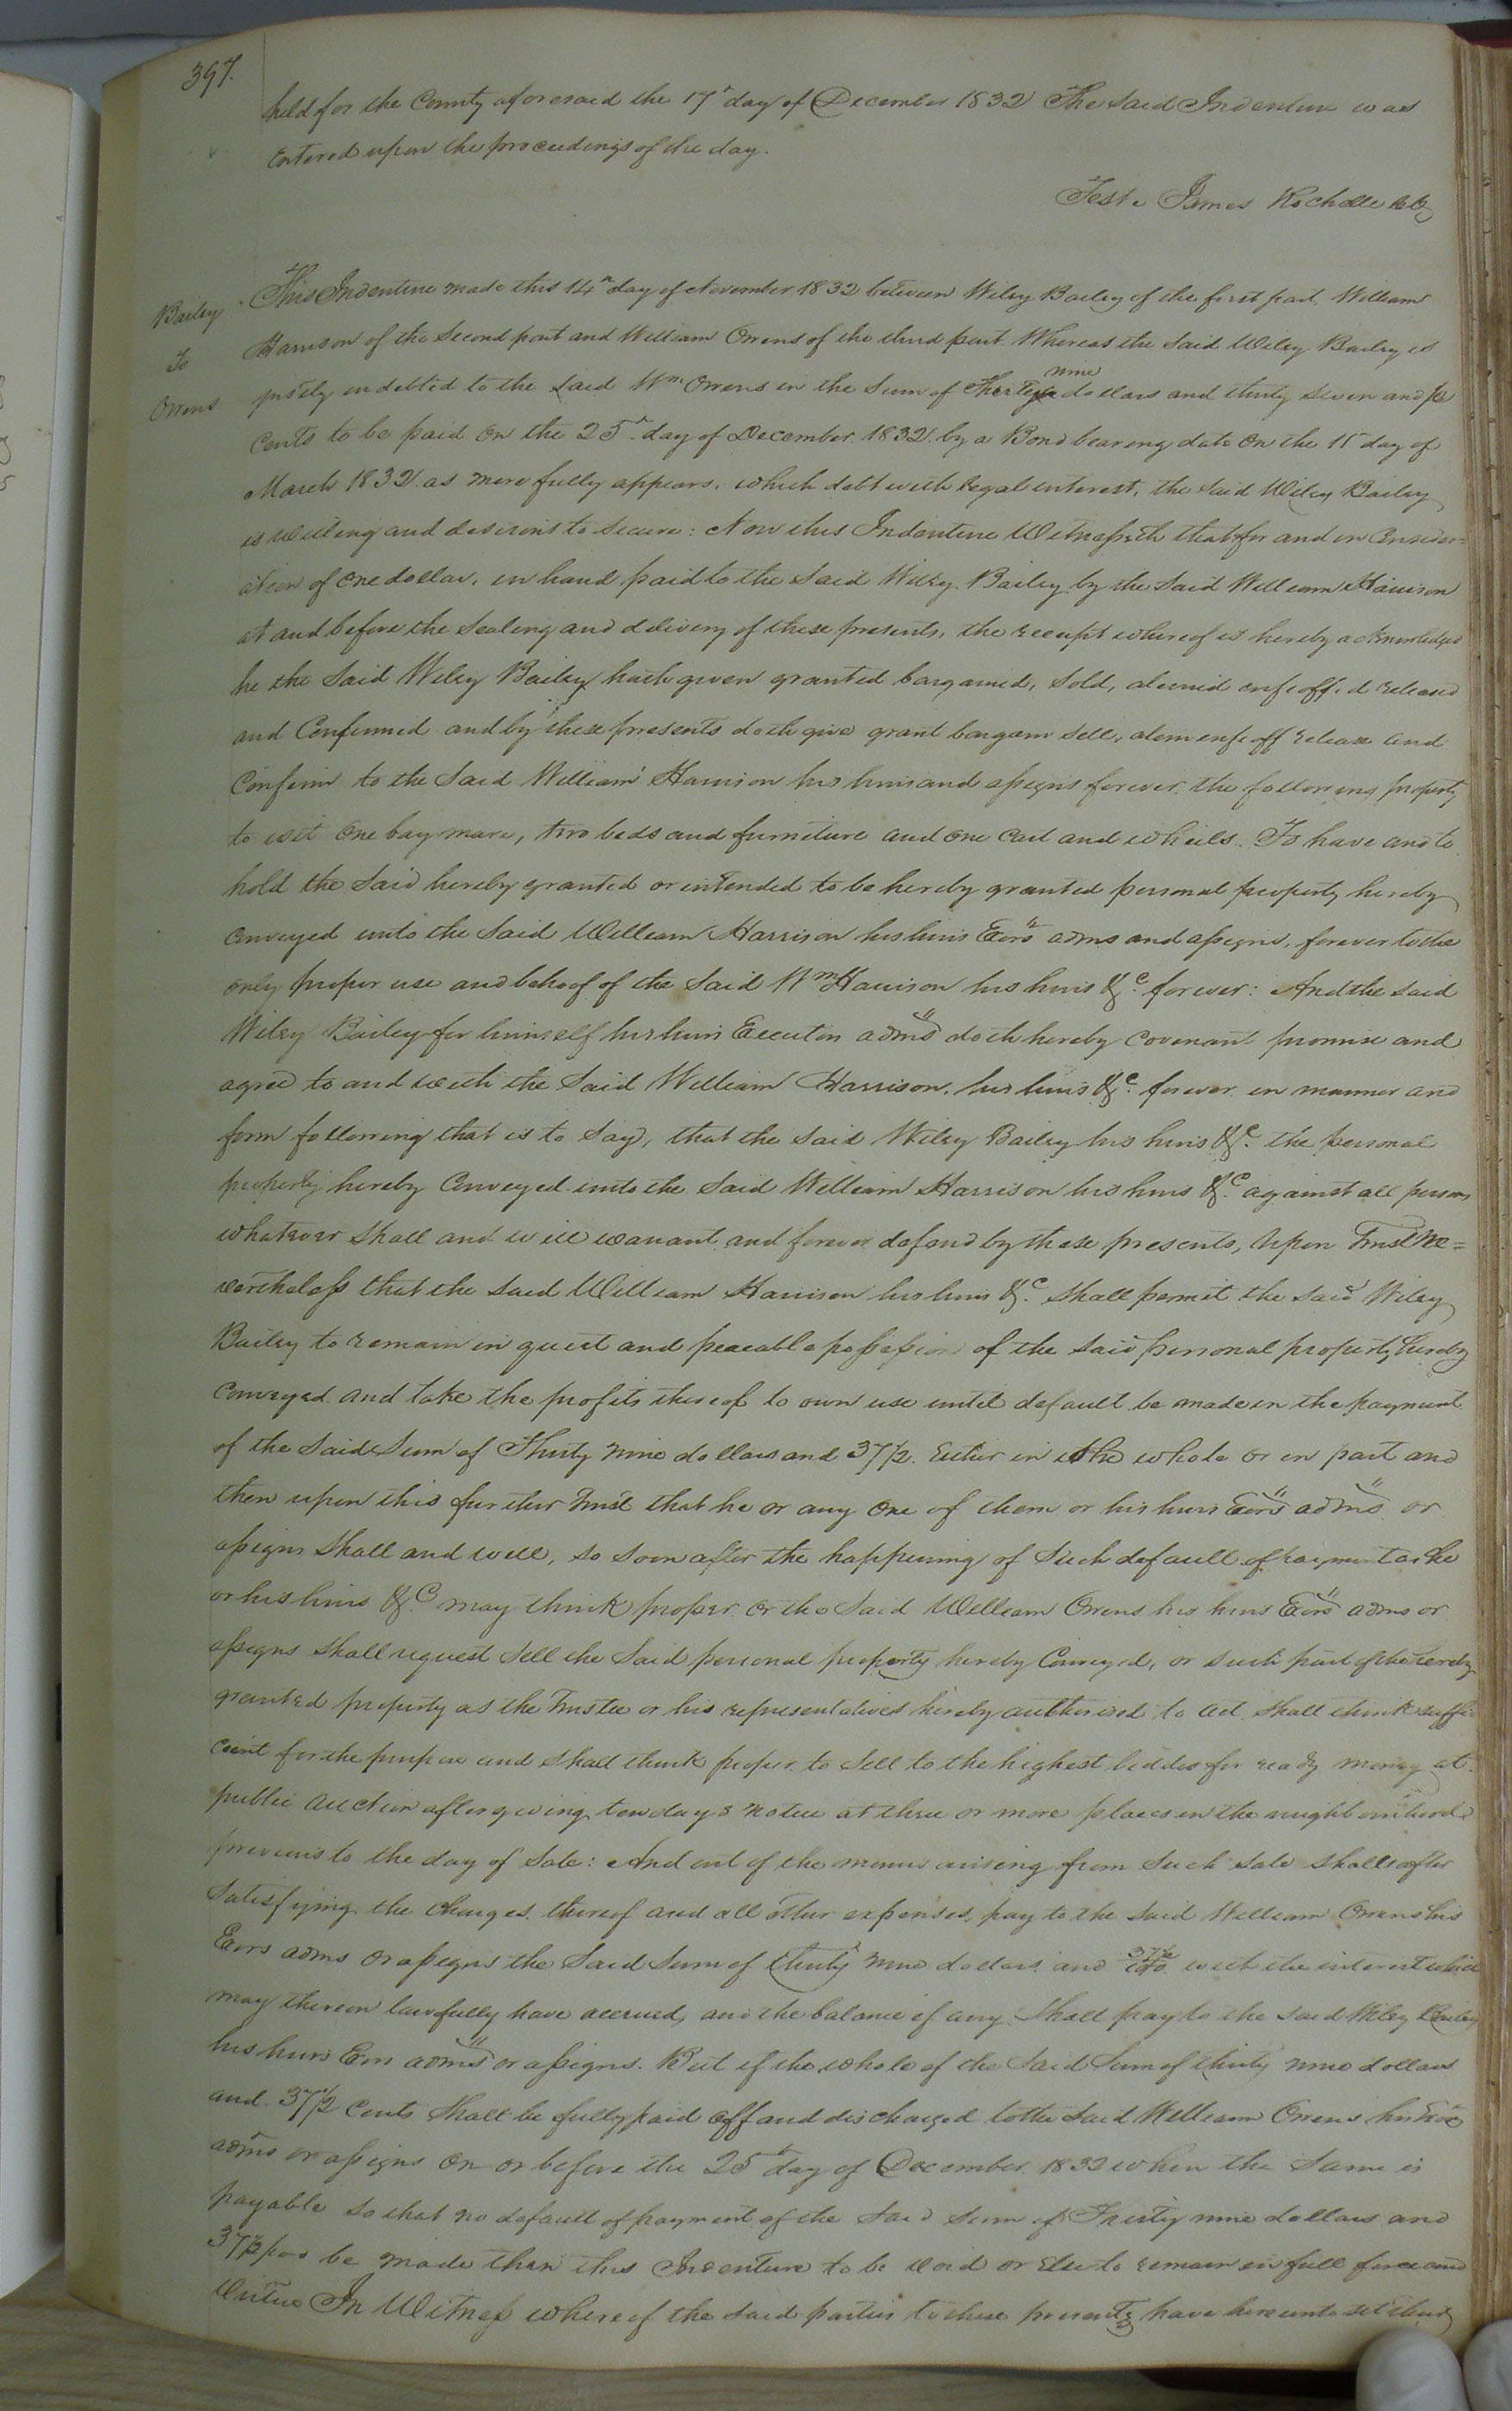 397.
held for the County aforesaid the 17th day of December 1832 The said Indenture was
Entered upon the proceedings of the day.
Teste James Rochelle
Bailey
To
Owens
This Indenture made this 14th day of November 1832 between Wiley Bailey of the first part William
Harrison of the Second part and William Owens of the third part. Whereas the said Wiley Bailey is
nine
justly indebted to the said Wm Owens in the sum of Thirty dollars and thirty seven and ½
Cents to be paid on the 25th day of December 1832 by a Bond bearing date on the 15 day of
March 1832 as more fully appears, which debt with legal interest, the said Wiley Bailey
is willing and desirous to secure: Now this Indenture Witnesseth that for and in Consider=
ation of one dollar, in hand paid to the said Wiley Bailey by the said William Harrison
at and before the sealing and delivery of these presents, the receipt whereof is hereby acknowledged
he the said Wiley Bailey hath given granted bargained, sold, aliened enfeoffed released
and Confirmed and by these presents doth give grant bargain sell, alien enfeoff release and
Confirm to the said William Harrison his heirs and assigns forever the following property
to wit one bay mare, two beds and furniture and one cart and wheels. To have and to
hold the said hereby granted or intended to be hereby granted personal property hereby
conveyed unto the said William Harrison his heirs Exors adms and assigns, forever to the
only proper use and behoof of the said Wm Harrison his heirs &c. forever: And the said
Wiley Bailey for himself his heirs Executors adms doth hereby covenant promise and
agree to and with the said William Harrison, his heirs &c. forever in manner and
form following that is to say, that the said Wiley Bailey his heirs &c. the personal
property hereby Conveyed unto the said William Harrison his heirs &c. against all persons
whatever shall and will warrant and forever defend by these presents, Upon Trust Ne=
vertheless that the said William Harrison his heirs &c. shall permit the said Wiley
Bailey to remain in quiet and peaceable possession of the said personal property hereby
conveyed and take the profits thereof to own use until default be made in the payment
of the said Sum of Thirty nine dollars and 37½. Either in the whole or in part and
then upon this further Trust that he or any one of them or his heirs Exors adms or
assigns shall and will, so soon after the happening of such default of payment as he
or his heirs &c. may think proper or the said William Owens his heirs Exors adms or
assigns shall request sell the said personal property hereby Conveyed, or such part of the hereby
granted property as the Trustee or his representatives hereby authorised to act shall think suffi
cient for the purpose and shall think proper to sell to the highest bidder for ready money at
public auction after giving ten days notice at three or more places in the neighbourhood
previous to the day of sale: And out of the monies arising from such sale shall after
satisfying the charges thereof and all other expenses, pay to the said William Owens his
Exors adms or assigns the said sum of thirty nine dollars and 37½ cts with the interest which
may thereon lawfully have accrued, and the balance if any shall pay to the said Wiley Bailey
his heirs Exors adms or assigns. But if the whole of the said sum of thirty nine dollars
and 37½ Cents shall be fully paid off and discharged to the said William Owens his Exors
adms or assigns on or before the 25th day of December 1832 when the same is
payable so that no default of payment of the said sum of Thirty nine dollars and
37½ be made then this Indenture to be void or else to remain in full force and
Virtue In Witness whereof the said parties to these presents have hereunto set their